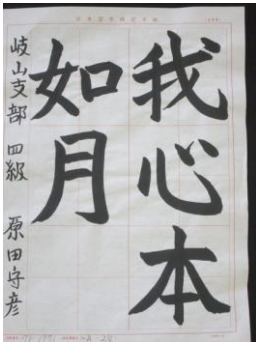 我心本
如月
岐山支部 四級 原田守彦